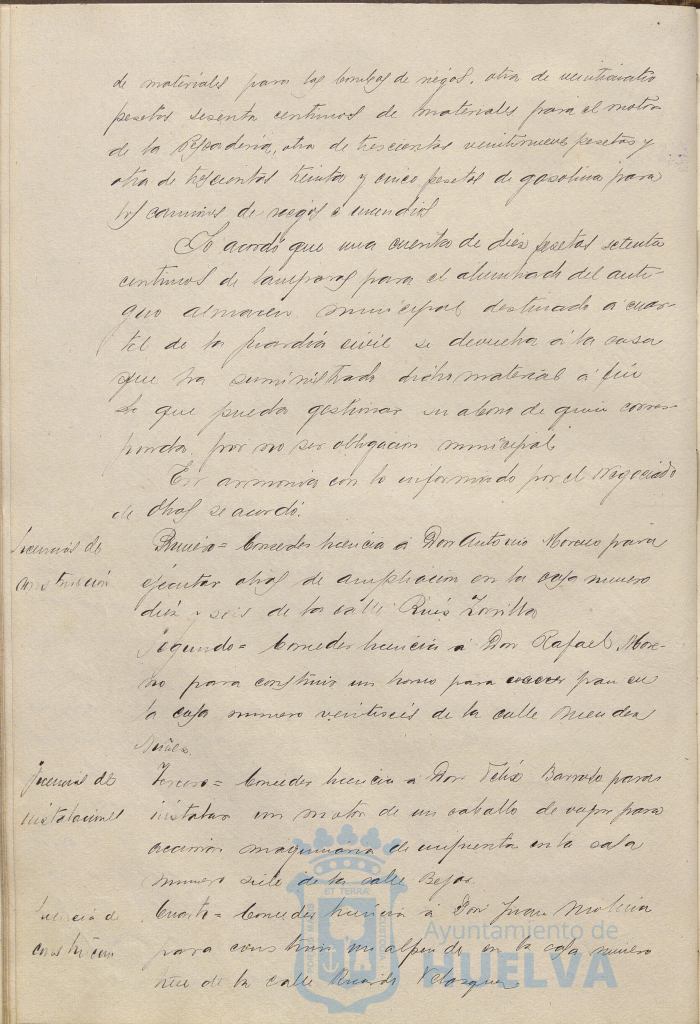 de materiales para las bombas de riegos, otra de veinticuatro
pesetas sesenta centimos de materiales para el motor
de la Pescaderia, otra de trescientas veintinueve pesetas y
otra de trescientas treinta y cinco pesetas de gasolina para
los camiones de riegos e incendios
Se acordó que una cuenta de diez pesetas setenta
centimos de lamparas para el alumbrado del anti-
guo almacen municipal destinado a cuar-
tel de la Guardia civil se devuelva á la casa
que ha suministrado dicho material a fin
de que pueda gestionar su abono de quien corres
ponda, por no ser obligacion municipal
En armonia con lo informado por el Negociado
de Obras se acordó.
Licencias de
construcción
Primero = Conceder licencia á Don Antonio Moreno para
ejecutar obras de ampliacion en la casa numero
diez y seis de la calle Ruiz Zorrilla
Segundo = Conceder licencia a Don Rafael More-
no para construir un horno para cocer pan en
la casa numero veintiseis de la calle Mendez
Nuñez.
Licencias de
instalaciones
Tercero = Conceder licencia a Don Felix Barroso para
instalar un motor de un caballo de vapor para
accionar maquinaria de imprenta en la casa
numero siete de la calle Bejar.
Licencia de
construccion
Cuarto = Conceder licencia á Don Juan Molina
para construir un alpende en la casa numero
de la calle Velazquez
PORTUS MARIS
ET TERRÆ
CUSTODIA
Ayuntamiento de
HUELVA